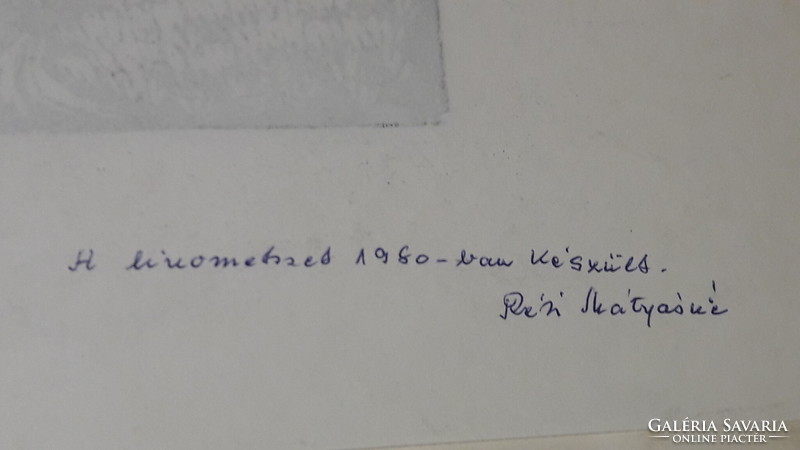 A linometszet 1980-ban készült.
Rési Mátyásné
GALÉRIA SAVARIA
ONLINE PIACTÉR